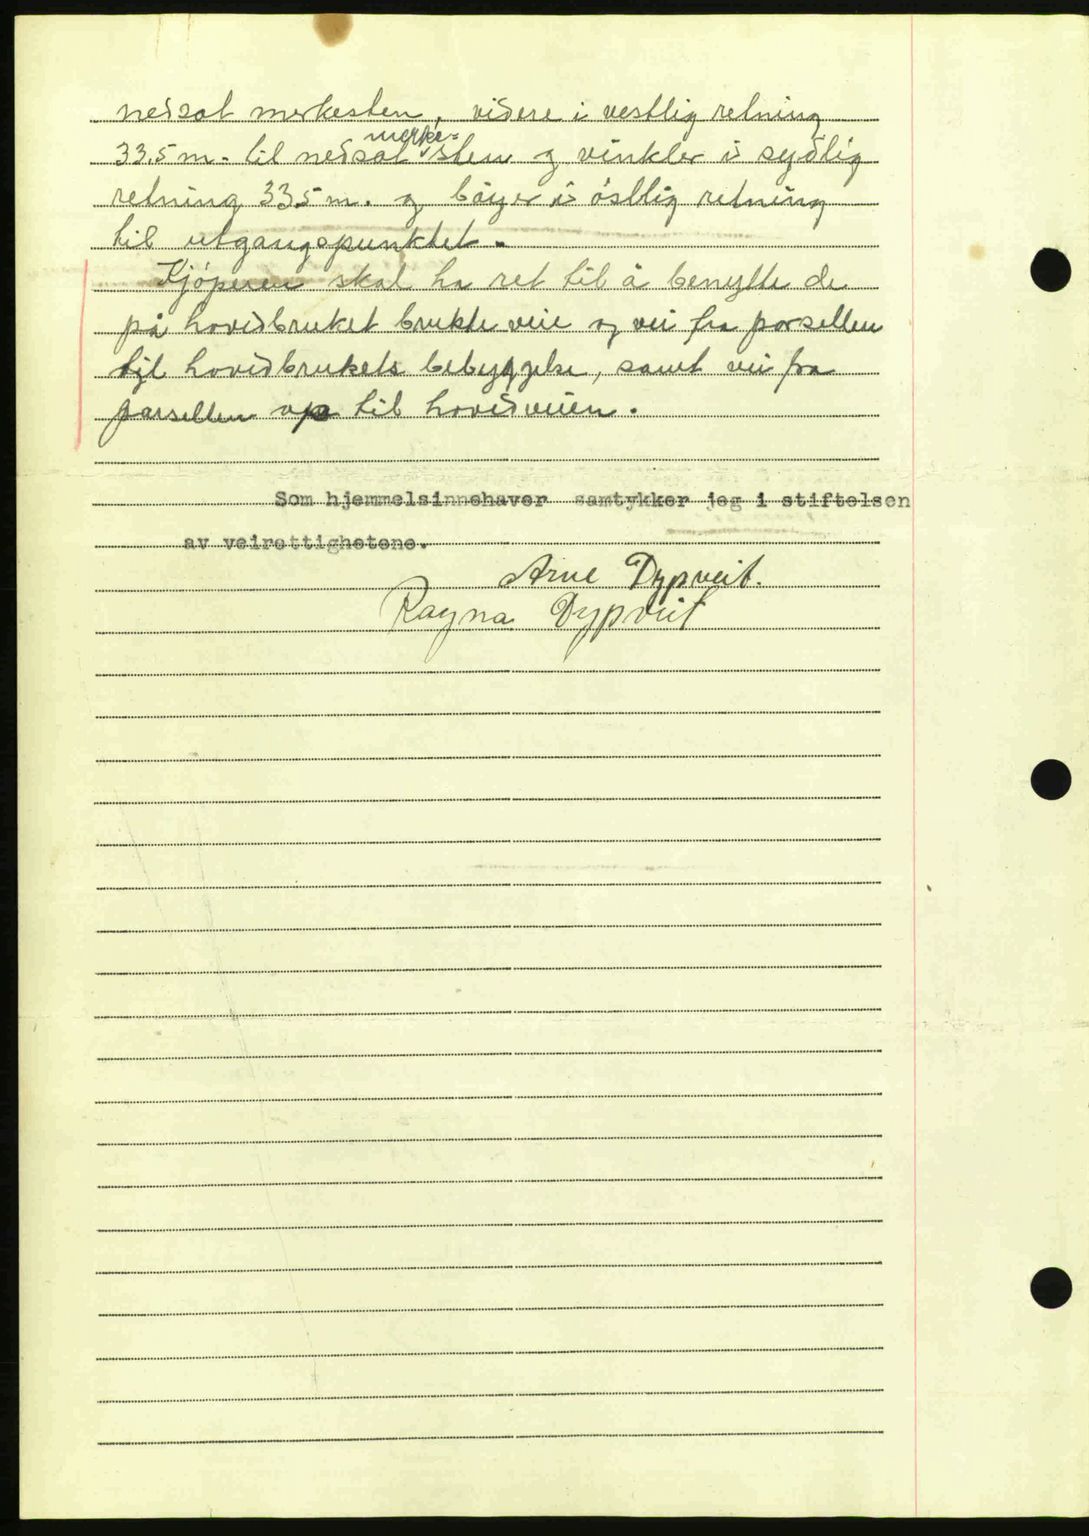 nedsat merkesten, videre i vestlig retning
33.5 m. til nedsat merke-sten og vinkler i sydlig
retning 33.5 m. og böyer i östlig retning
til utgangspunktet.
Kjöperen skal ha ret til å benytte de
på hovedbruket brukte veie og vei fra parsellen
til hovedbrukets bebyggelse, samt vei fra
parsellen op til hovedveien.
Som hjemmelsinnehaver samtykker jeg i stiftelsen
av veirettighetene.
Arne Dypveit.
Ragna Dypveit